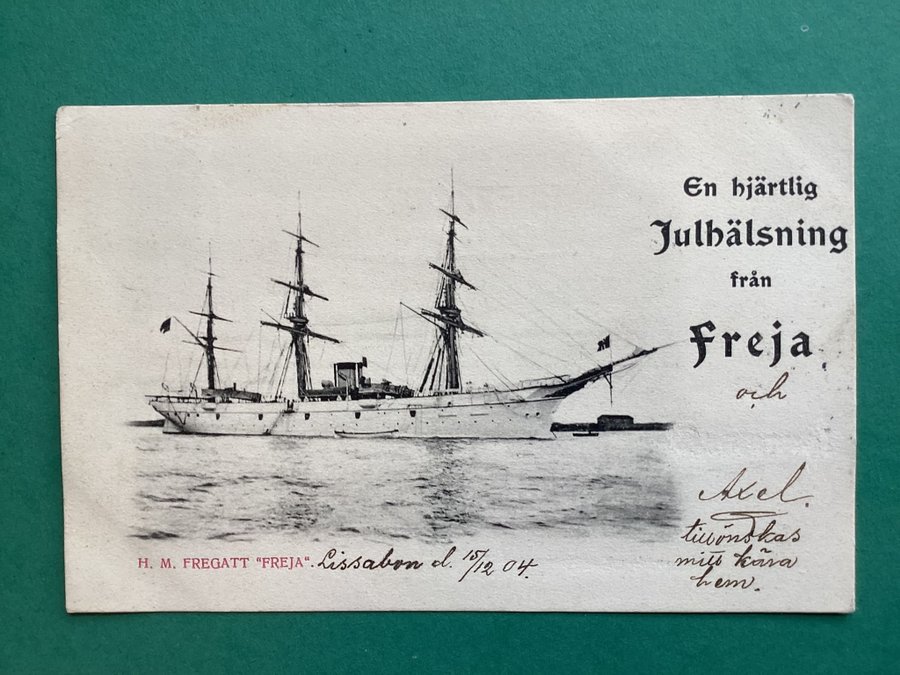 En hjärtlig
Julhälsning
från
Freja
och
Axel.
tillönskas
mitt kära
hem.
H. M. FREGATT "FREJA". Lissabon d. 15/12 04.